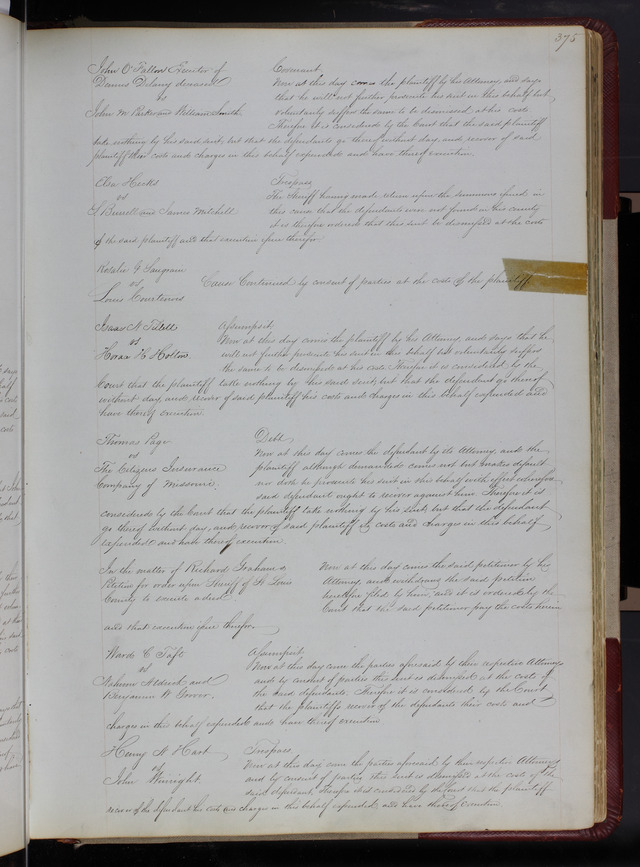 375
John O'Fallon Executor of Covenant
Dennis Delany deceased Now at this day comes the plaintiff by his Attorney, and says
vs that he will not further prosecute his suit in this behalf but
John M. Parker and William Smith. voluntarily suffers the same to be dismissed at his costs
Therefore it is considered by the Court that the said plaintiff
take nothing by his said suit, but that the defendants go thereof without day, and recover of said
plaintiff their costs and charges in this behalf expended and have thereof execution.
Hecks Trespass
vs The Sheriff having made return upon the summons issued in
Burrell and James Mitchell this cause that the defendants were not found in his county
it is therefore ordered that this suit be dismissed at the costs
of the said plaintiff and that execution issue therefor
Rosalie G Saugrain
vs Cause Continued by consent of parties at the costs of the plaintiff
Louis Courtenois
Isaac N Assumpsit
vs Now at this day comes the plaintiff by his Attorney and says that he
H will not further prosecute his suit in this behalf but voluntarily suffers
the same to be dismissed at his costs Therefore it is considered by the
Court that the plaintiff take nothing by his said suit, but that the defendant go thereof
without day and recover of said plaintiff his costs and charges in this behalf expended and
have thereof execution.
Thomas Page Debt
vs Now at this day comes the defendant by its Attorney and the
The Citizens Insurance plaintiff although demanded comes not but makes default
Company of Missouri. nor doth he prosecute his suit in this behalf with effect wherefore
said defendant ought to recover against him Therefore it is
considered by the Court that the plaintiff take nothing by his suit, but that the defendant
go thereof without day, and recover of said plaintiff costs and charges in this behalf
expended and have thereof execution.
In the matter of Richard Graham's Now at this day comes the said petitioner by his
Petition for order upon Sheriff of St Louis Attorney, and withdraws the said petition
County to execute a deed heretofore filed by him, and it is ordered by the
Court that the said petitioner pay the costs herein
and that execution issue therefor.
Ward C Tafts Assumpsit
vs Now at this day come the parties aforesaid by their respective Attorneys
and and by consent of parties this suit is dismissed at the costs of
Benjamin W. Grover. the said defendants. Therefore it is considered by the Court
that the plaintiffs recover of the defendants their costs and
charges in this behalf expended and have thereof execution
Henry N Hart Trespass
vs Now at this day come the parties aforesaid by their respective Attorneys
John and by consent of parties this suit is dismissed at the costs of the
said defendant, Therefore it is considered by the Court that the plaintiff
recover of the defendant his costs and charges in this behalf expended and have thereof execution.